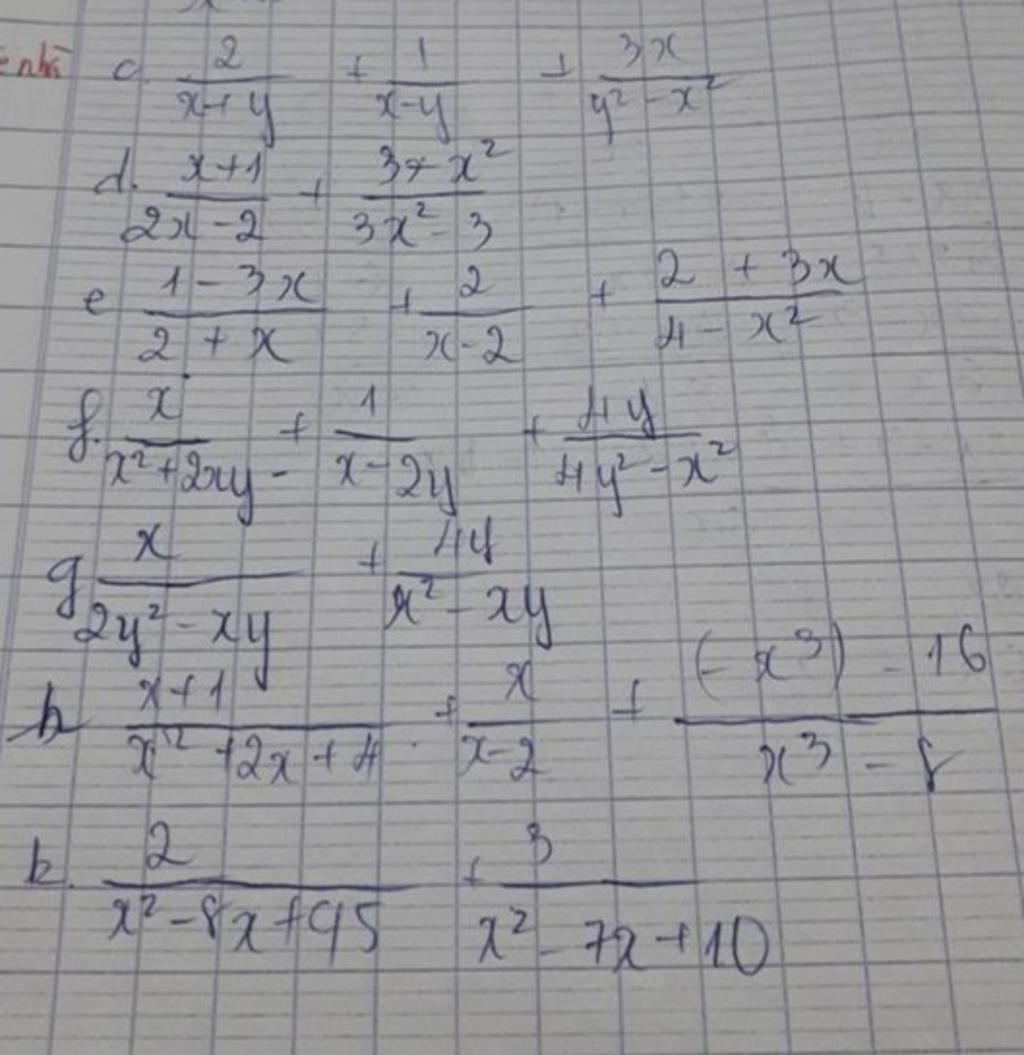 c. 2/(x+y) + 1/(x-y) + 3x/(y² - x²)
d. (x+1)/(2x-2) + (3+x²)/(3x²-3)
e (1-3x)/(2+x) + 2/(x-2) + (2+3x)/(4-x²)
f. x/(x²+2xy-) + 1/(x-2y) + 4y/(4y²-x²)
g x/(2y²-xy) + 4y/(x²-xy)
h (x+1)/(x²+2x+4) + x/(x-2) + ((-x³)-16)/(x³-8)
k. 2/(x²-8x+95) + 3/(x²-7x+10)